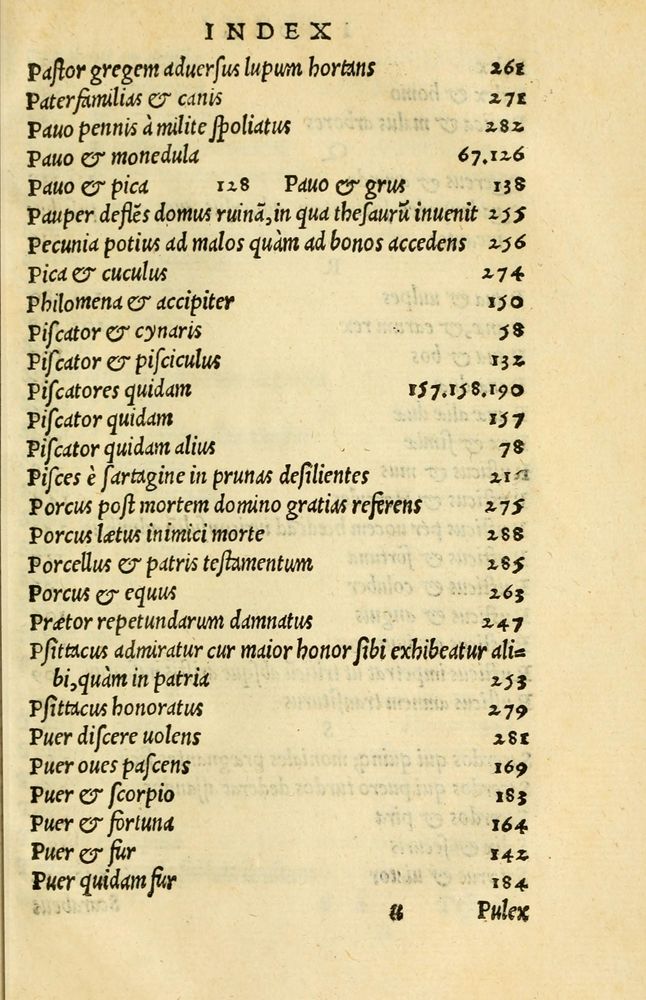 INDEX
Paſtor gregem aduerſus lupum hortans 261
Paterfamilias & canis 271
Pauo pennis à milite ſpoliatus 282
Pauo & monedula 67.126
Pauo & pica 128 Pauo & grus 138
Pauper deflēs domus ruinā, in qua theſaurū inuenit 255
Pecunia potius ad malos quàm ad bonos accedens 256
Pica & cuculus 274
Philomena & accipiter 150
Piſcator & cynaris 58
Piſcator & piſciculus 132
Piſcatores quidam 157.158.190
Piſcator quidam 157
Piſcator quidam alius 78
Piſces è ſartagine in prunas deſilientes
Porcus poſt mortem domino gratias referens 275
Porcus lætus inimici morte 288
Porcellus & patris teſtamentum 285
Porcus & equus 263
Prætor repetundarum damnatus 247
Pſittacus admiratur cur maior honor ſibi exhibeatur ali=
bi, quàm in patria 253
Pſittacus honoratus 279
Puer diſcere uolens 281
Puer oues paſcens 169
Puer & ſcorpio 183
Puer & fortuna 164
Puer & fur 142
Puer quidam fur 184
Pulex